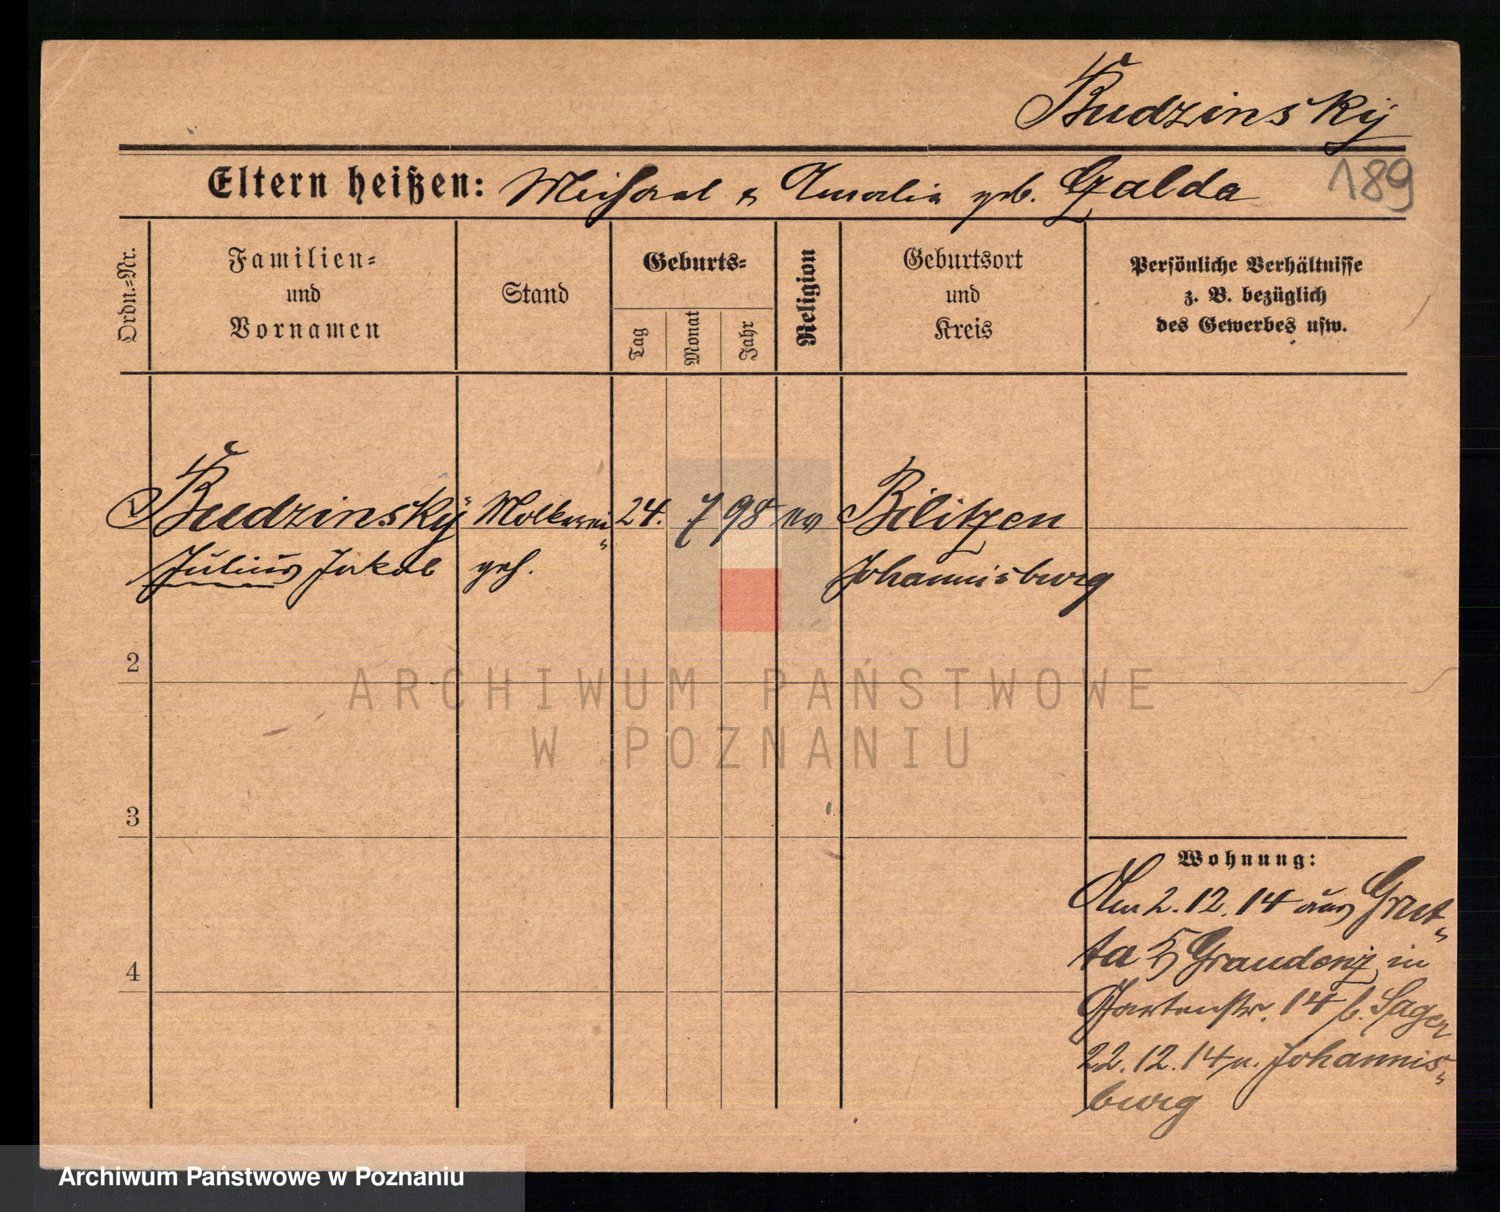 Budzinsky
189
Eltern heißen: Michael & Amalia geb. Galda
Ordn.-Nr.
Familien-
und
Vornamen
Stand
Geburts-
Tag
Monat
Jahr
Religion
Geburtsort
und
Kreis
Persönliche Verhältnisse
z. B. bezüglich
des Gewerbes usw.
1 Budzinsky Molkerei- 24. 7 98 ev Bilitzen
Julius Jakob geh. Johannisburg
2
3
4
Wohnung:
Am 2.12.14 aus Grut-
ta Graudenz in
Gartenstr. 14 b. Sager
22.12.14 n. Johannis-
burg
ARCHIWUM PAŃSTWOWE
W POZNANIU
Archiwum Państwowe w Poznaniu